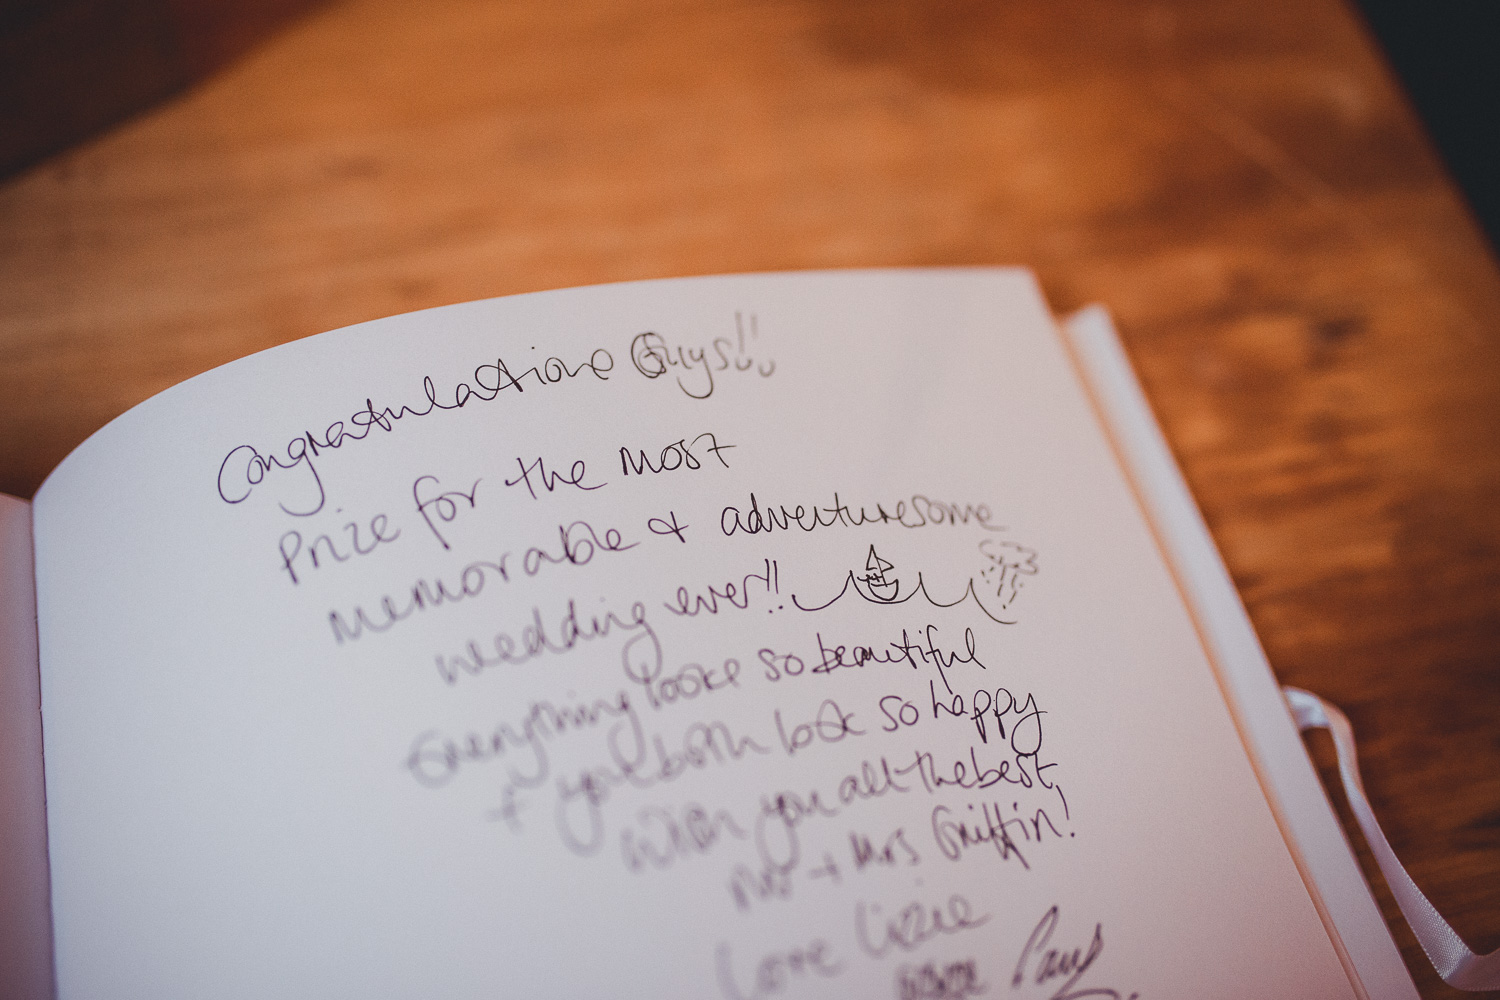 Congratulations Guys!!
Prize for the most
memorable & adventuresome
wedding ever!!
Everything looks so beautiful
+ you both look so happy
wish you all the best,
Mr + Mrs Griffin!
Love Lizzie
Paul